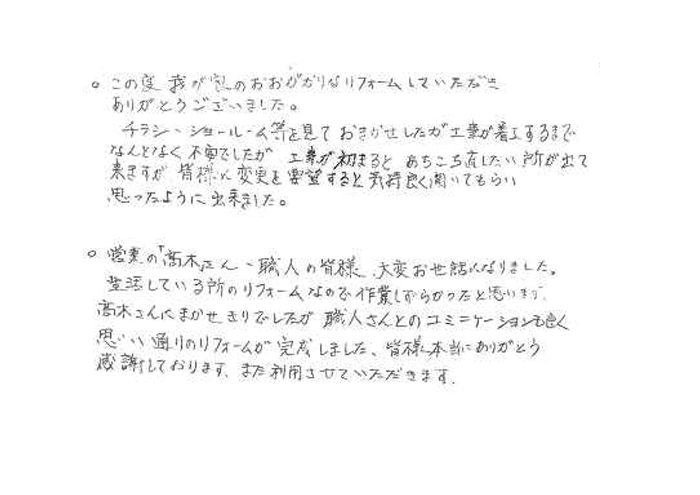 ○ この度 我が家のおおがかりなリフォームしていただき
ありがとうございました。
チラシ、ショールーム等を見て おまかせしたが工事が着工するまで
なんとなく不安でしたが 工事が初まると あちこち直したい所が出て
来ますが 皆様に変更を要望すると気持良く聞いてもらい
思ったように出来ました。
○ 営業の「高木さん、職人の皆様、大変お世話になりました。
生活している所のリフォームなので作業しずらかったと思います。
高木さんにまかせきりでしたが 職人さんとのコミニケーションも良く
思い通りのリフォームが完成しました、皆様本当にありがとう
感謝しております、また利用させていただきます.